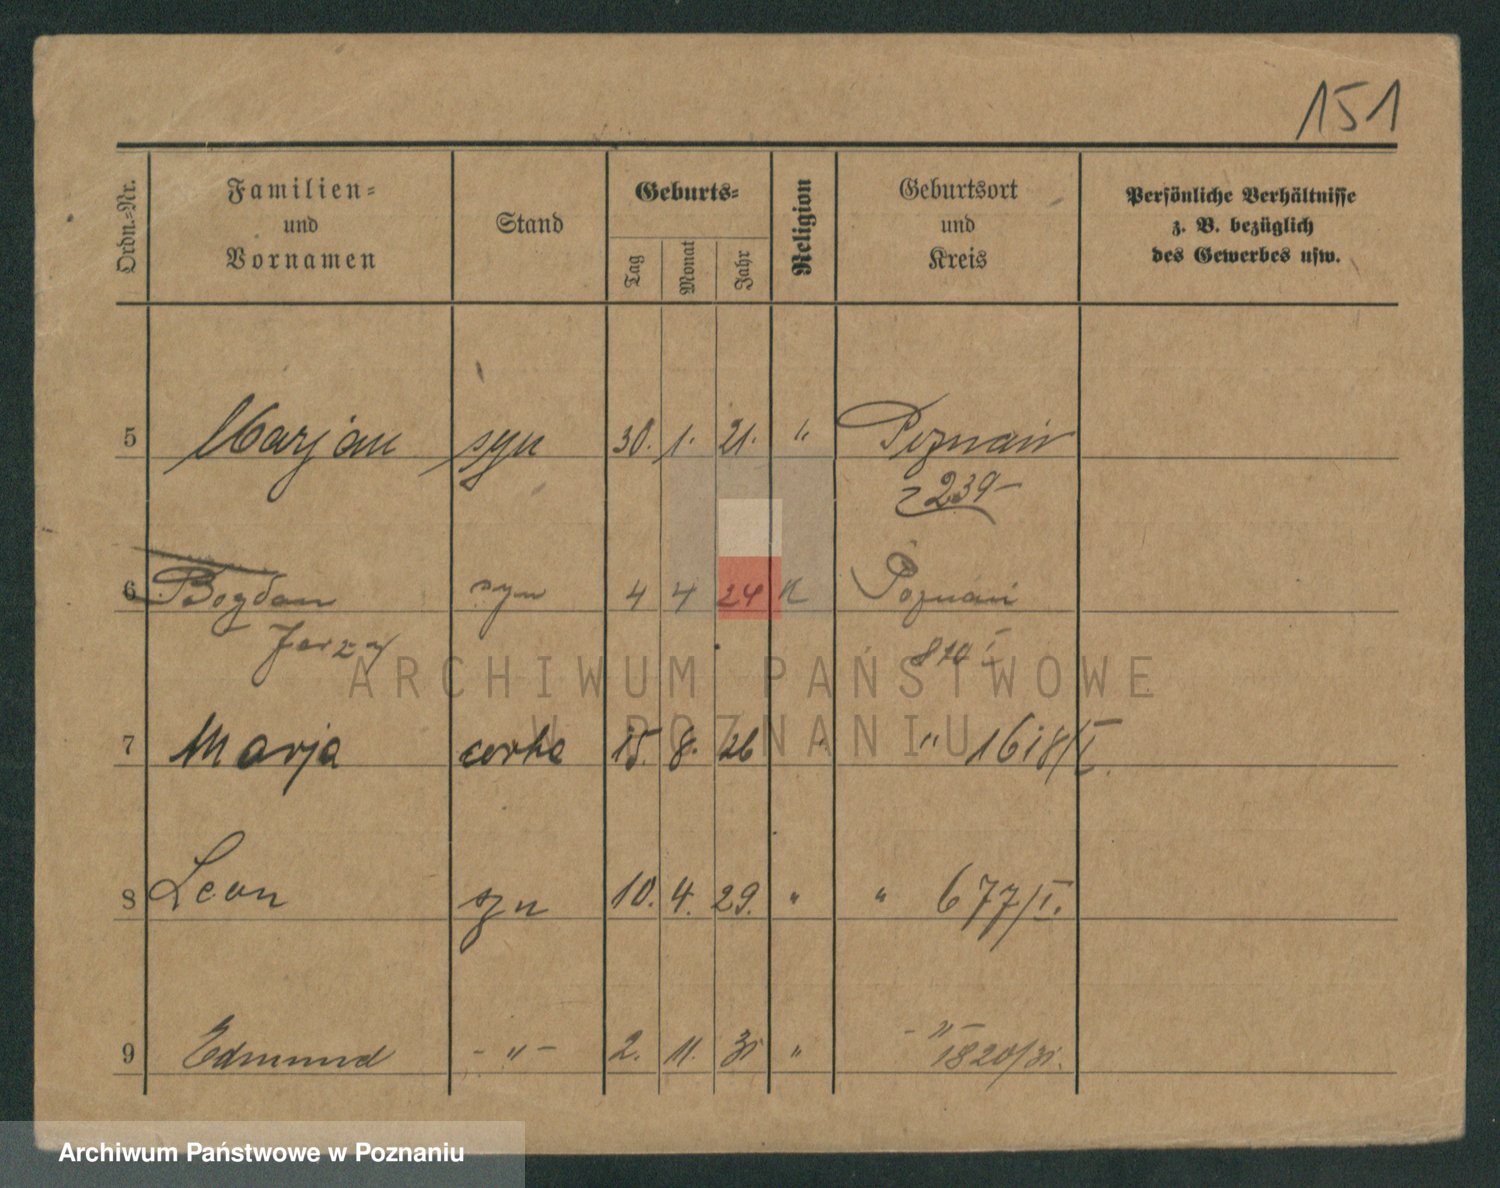 151
Ordn.-Nr.
Familien-
und
Vornamen
Stand
Geburts-
Tag
Monat
Jahr
Religion
Geburtsort
und
Kreis
Persönliche Verhältnisse
z. B. bezüglich
des Gewerbes usw.
5 Marjan syn 30. 1. 21. " Poznań
239
6 Bogdan syn 4 4 24 Poznań
Jerzy
7 Marja corka 15. 8. 26 " " 1618/I.
8 Leon syn 10. 4. 29. " " 677/I.
9 Edmund - " - 2. 11. 31 " - " -
1820/31.
ARCHIWUM PAŃSTWOWE
W POZNANIU
Archiwum Państwowe w Poznaniu